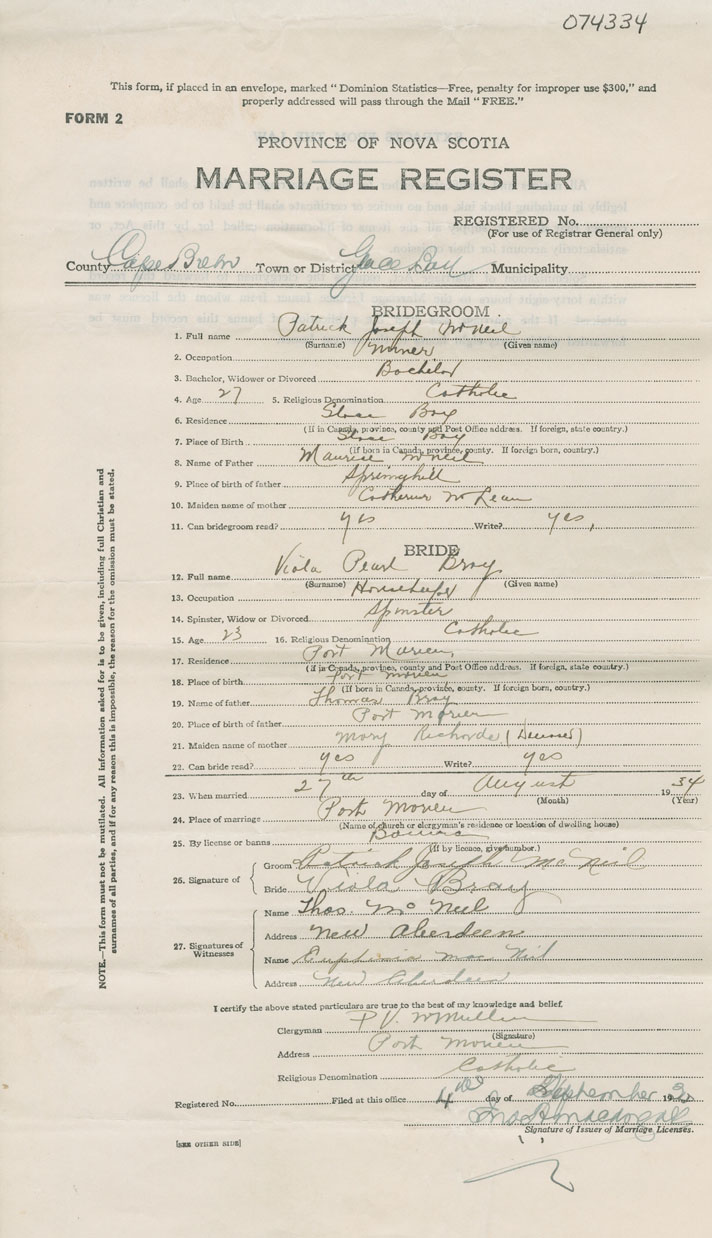 074334
This form, if placed in an envelope, marked "Dominion Statistics—Free, penalty for improper use $300," and
properly addressed will pass through the Mail "FREE."
FORM 2
PROVINCE OF NOVA SCOTIA
MARRIAGE REGISTER
REGISTERED No.
(For use of Registrar General only)
County Cape Breton Town or District Glace Bay Municipality
BRIDEGROOM.
1. Full name Patrick Joseph McNeil
(Surname) (Given name)
2. Occupation Miner
3. Bachelor, Widower or Divorced Bachelor
4. Age 27 5. Religious Denomination Catholic
6. Residence Bay
(If in Canada, province, county and Post Office address. If foreign, state country.)
7. Place of Birth Bay
(If born in Canada, province, county. If foreign born, country.)
8. Name of Father Maurice McNeil
9. Place of birth of father Springhill
10. Maiden name of mother Catherine McLean
11. Can bridegroom read? yes Write? yes,
BRIDE
12. Full name Viola Pearl Bray
(Surname) (Given name)
13. Occupation
14. Spinster, Widow or Divorced Spinster
15. Age 23 16. Religious Denomination Catholic
17. Residence Port Morien,
(If in Canada, province, county and Post Office address. If foreign, state country.)
18. Place of birth Port Morien
(If born in Canada, province, county. If foreign born, country.)
19. Name of father Thomas Bray
20. Place of birth of father Port Morien
21. Maiden name of mother Mary (Deceased)
22. Can bride read? yes Write? yes
23. When married 27th day of August 1934
(Month) (Year)
24. Place of marriage Port Morien
(Name of church or clergyman's residence or location of dwelling house)
25. By license or banns Banns
(If by licence, give number.)
26. Signature of
Groom Patrick Joseph McNeil
Bride Viola Bray
27. Signatures of Witnesses
Name Thos. McNeil
Address New Aberdeen
Name Euphemia MacNeil
Address New Aberdeen
I certify the above stated particulars are true to the best of my knowledge and belief.
Clergyman P. V. McMullin
(Signature)
Address Port Morien
Religious Denomination Catholic
Registered No. Filed at this office 4th day of September 193
Signature of Issuer of Marriage Licenses.
[SEE OTHER SIDE]
NOTE.—This form must not be mutilated. All information asked for is to be given, including full Christian and
surnames of all parties, and if for any reason this is impossible, the reason for the omission must be stated.